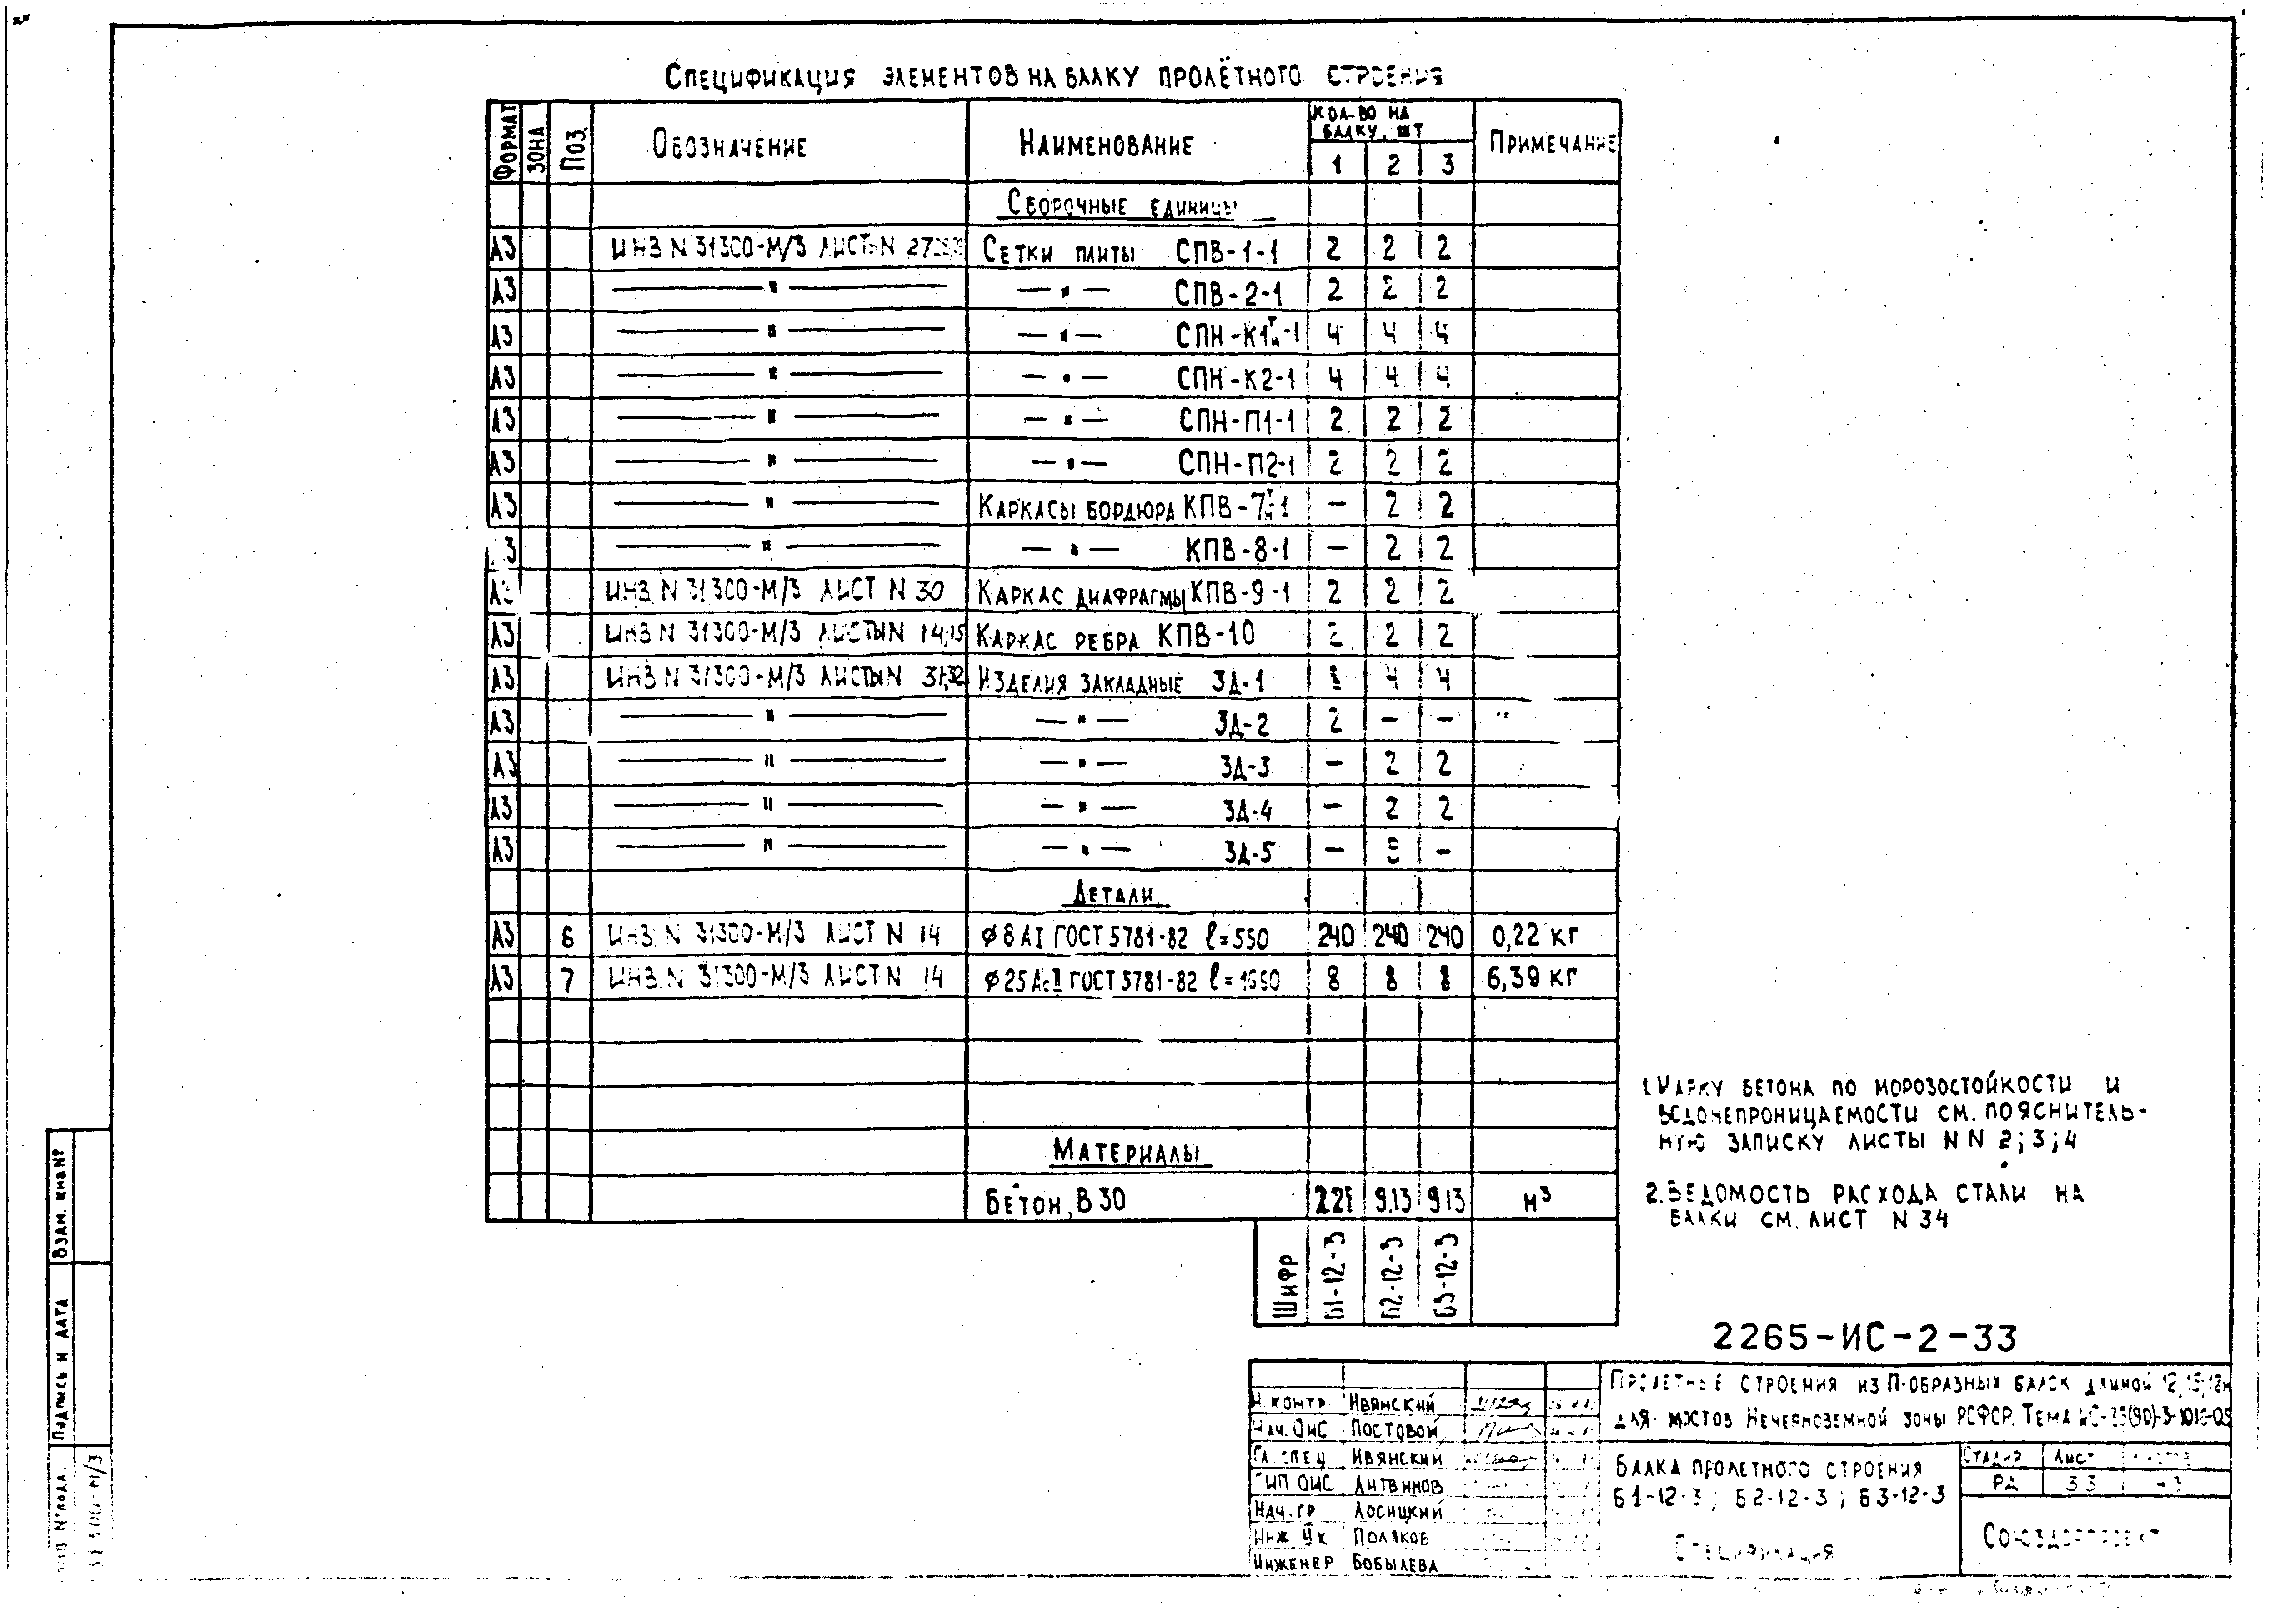 Спецификация элементов на балку пролётного строения
Формат Зона Поз. Обозначение Наименование Кол-во на балку, шт Примечание
1 2 3
Сборочные единицы
А3 Инв N 31300-М/3 листы N 27 Сетки плиты СПВ-1-1 2 2 2
А3 — " — — " — СПВ-2-1 2 2 2
А3 — " — — " — СПН-К1ᵀн-1 4 4 4
А3 — " — — " — СПН-К2-1 4 4 4
А3 — " — — " — СПН-П1-1 2 2 2
А3 — " — — " — СПН-П2-1 2 2 2
А3 — " — Каркасы бордюра КПВ-7ᵀн-1 — 2 2
3 — " — — " — КПВ-8-1 — 2 2
А3 Инв. N 31300-М/3 лист N 30 Каркас диафрагмы КПВ-9-1 2 2 2
А3 Инв N 31300-М/3 листы N 14,15 Каркас ребра КПВ-10 2 2 2
А3 Инв N 31300-М/3 листы N 31,32 Изделия закладные ЗД-1 4 4
А3 — " — — " — ЗД-2 2 — —
А3 — " — — " — ЗД-3 — 2 2
А3 — " — — " — ЗД-4 — 2 2
А3 — " — — " — ЗД-5 — —
Детали
А3 6 Инв. N 31300-М/3 лист N 14 ⌀8 АI ГОСТ 5781-82 ℓ=550 240 240 240 0,22 кг
А3 7 Инв. N 31300-М/3 лист N 14 ⌀25 АсII ГОСТ 5781-82 ℓ=1660 8 8 8 6,39 кг
Материалы
Бетон, В30 9.13 9.13 м³
Шифр Б1-12-3 Б2-12-3 Б3-12-3
1. Марку бетона по морозостойкости и
водонепроницаемости см. пояснитель-
ную записку листы NN 2; 3; 4
2. Ведомость расхода стали на
балки см. лист N 34
2265-ИС-2-33
Пролетные строения из П-образных балок длиной 12, 15, 18м
для мостов Нечерноземной зоны РСФСР. Тема
Н контр Ивянский
Нач. ОИС Постовой
Гл спец Ивянский
ГИП ОИС Литвинов
Нач. гр Лосицкий
Инж. Iк Поляков
Инженер Бобылева
Балка пролетного строения
Б1-12-3; Б2-12-3; Б3-12-3
Спецификация
Стадия Лист Листов
РД 33
Союздорпроект
Взам. инв N°
Подпись и дата
Инв N° подл.
31300-М/3